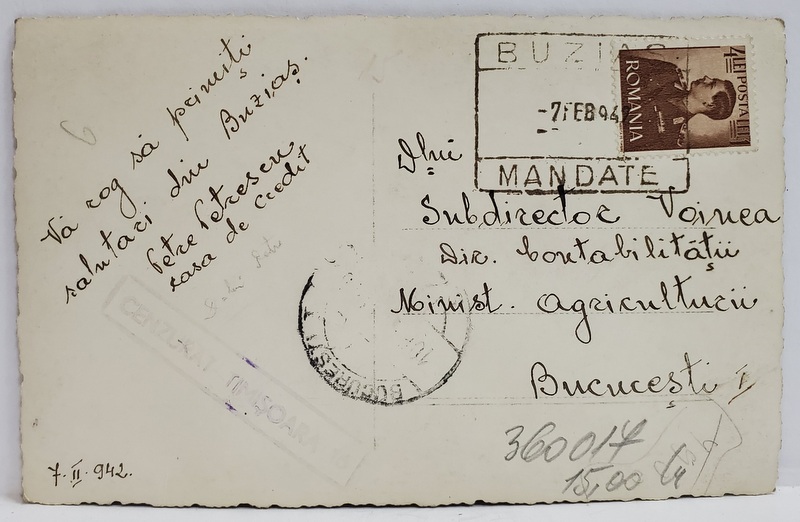 Vă rog să primiți
salutări din Buziaș.
Petre Petrescu
casa de credit
7.II.942.
BUZIAȘ
-7 FEB 942
MANDATE
4 LEI POSTA LEI 4
ROMANIA
Dlui
Subdirector Voinea
Dir. Contabilității
Minist. Agriculturii
București I
BUCUREȘTI
CENZURAT TIMIȘOARA
360014
15,00